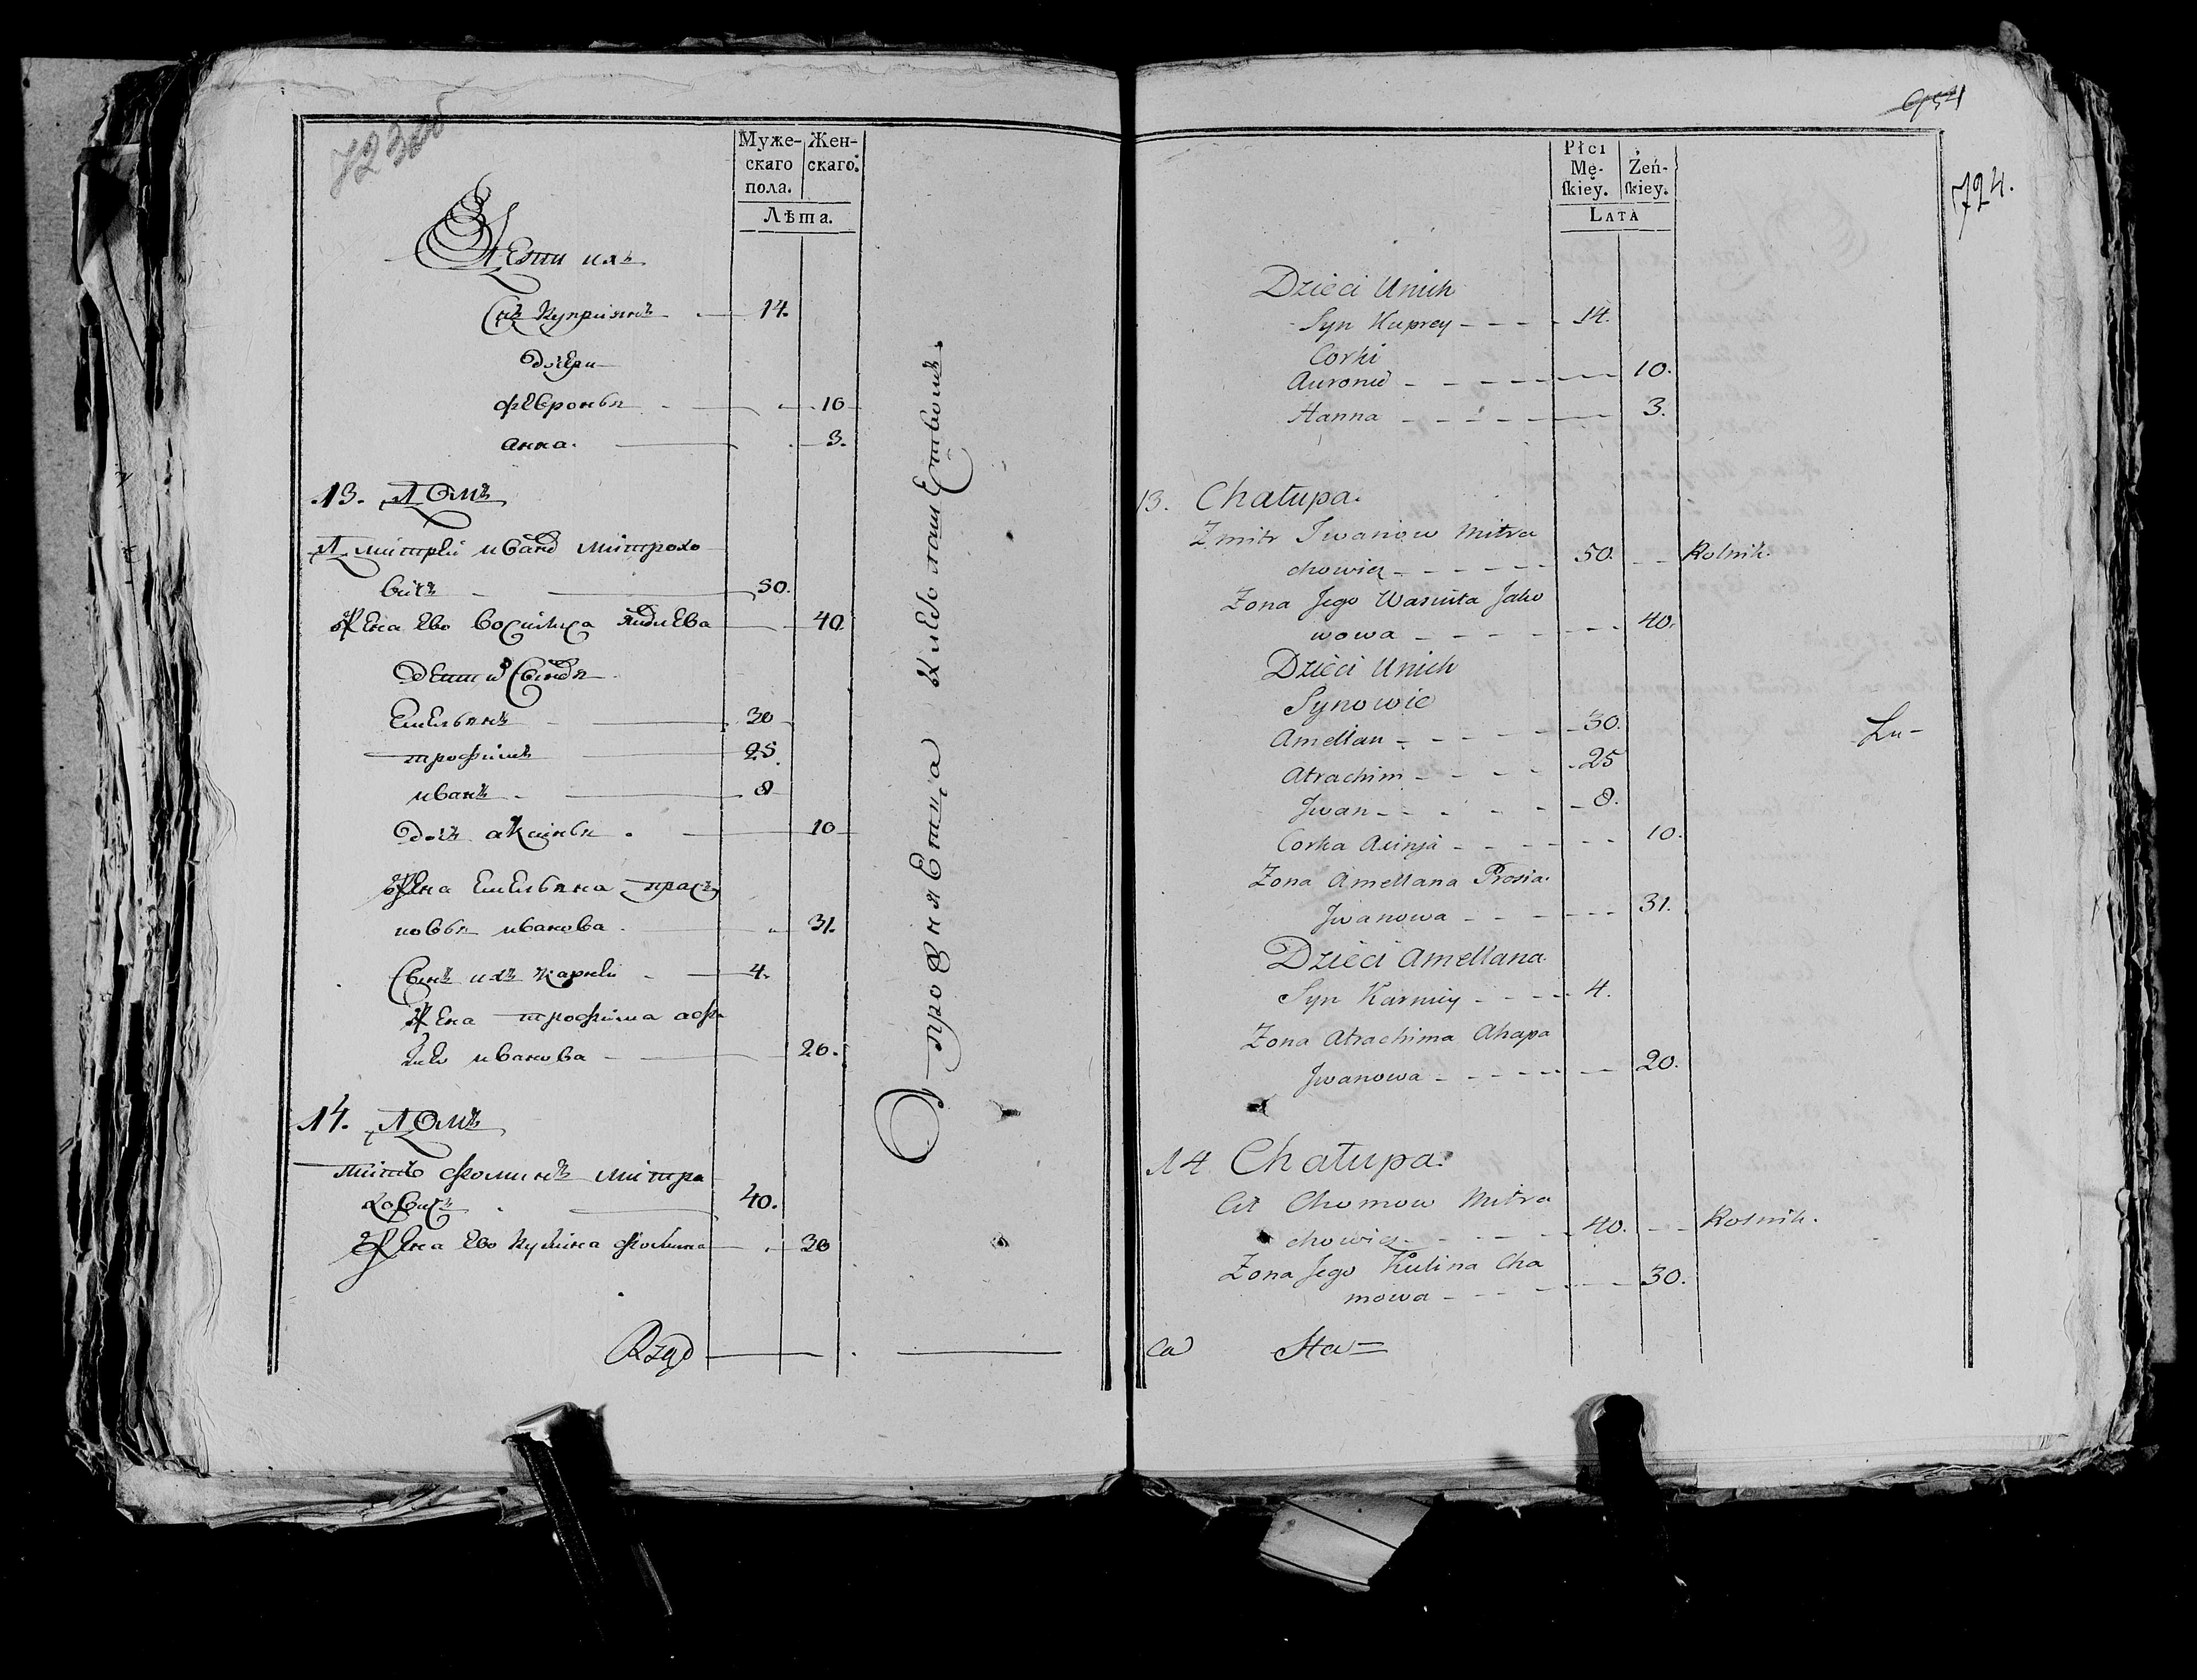 723об
Муже-
скаго
пола.
Жен-
скаго.
Лѣта.
Дети ихъ
Снъ Куприянъ 14.
дочери
Февронья 10
анна. 3.
13. Домъ
Дмитрей иванд митрохо
вичъ 50.
Жена ево Восилиса яковлева 40
дети Сыновья
Емельянъ 30
трофимъ 25.
иванъ 8
дочь аксинья 10
Жена Емельяна прас
ковья иванова 31.
Сынъ ихъ карней 4.
Жена трофима
иванова 20.
14. Домъ
титъ фоминъ митра
ховичъ 40.
Жена ево кулина фомина 30
Rząd
Упражняетца хлебопашествомъ.
954
724.
Płci
Mę-
ſkiey.
Żeń-
ſkiey.
Lata
Dzieci Unich
Syn Kuprey 14.
Corki
Auronia 10.
Hanna 3.
13. Chałupa.
Zmitr Iwanow Mitra
chowicz 50. Rolnik.
Zona Jego Wasilita Jako
wowa 40.
Dzieci Unich
Synowie
Amellan 30.
Atrachim 25
Jwan 8.
Corka Axinja 10.
Zona Amellana Prosia
Jwanowa 31.
Dzieci Amellana.
Syn Karniey 4.
Zona Atrachima Ahapa
Jwanowa 20.
Lu-
14 Chałupa.
Cit Chomow Mitra
chowicz 40. Rolnik.
Zona Jego Kulina Cha
mowa 30.
Ca Sta=